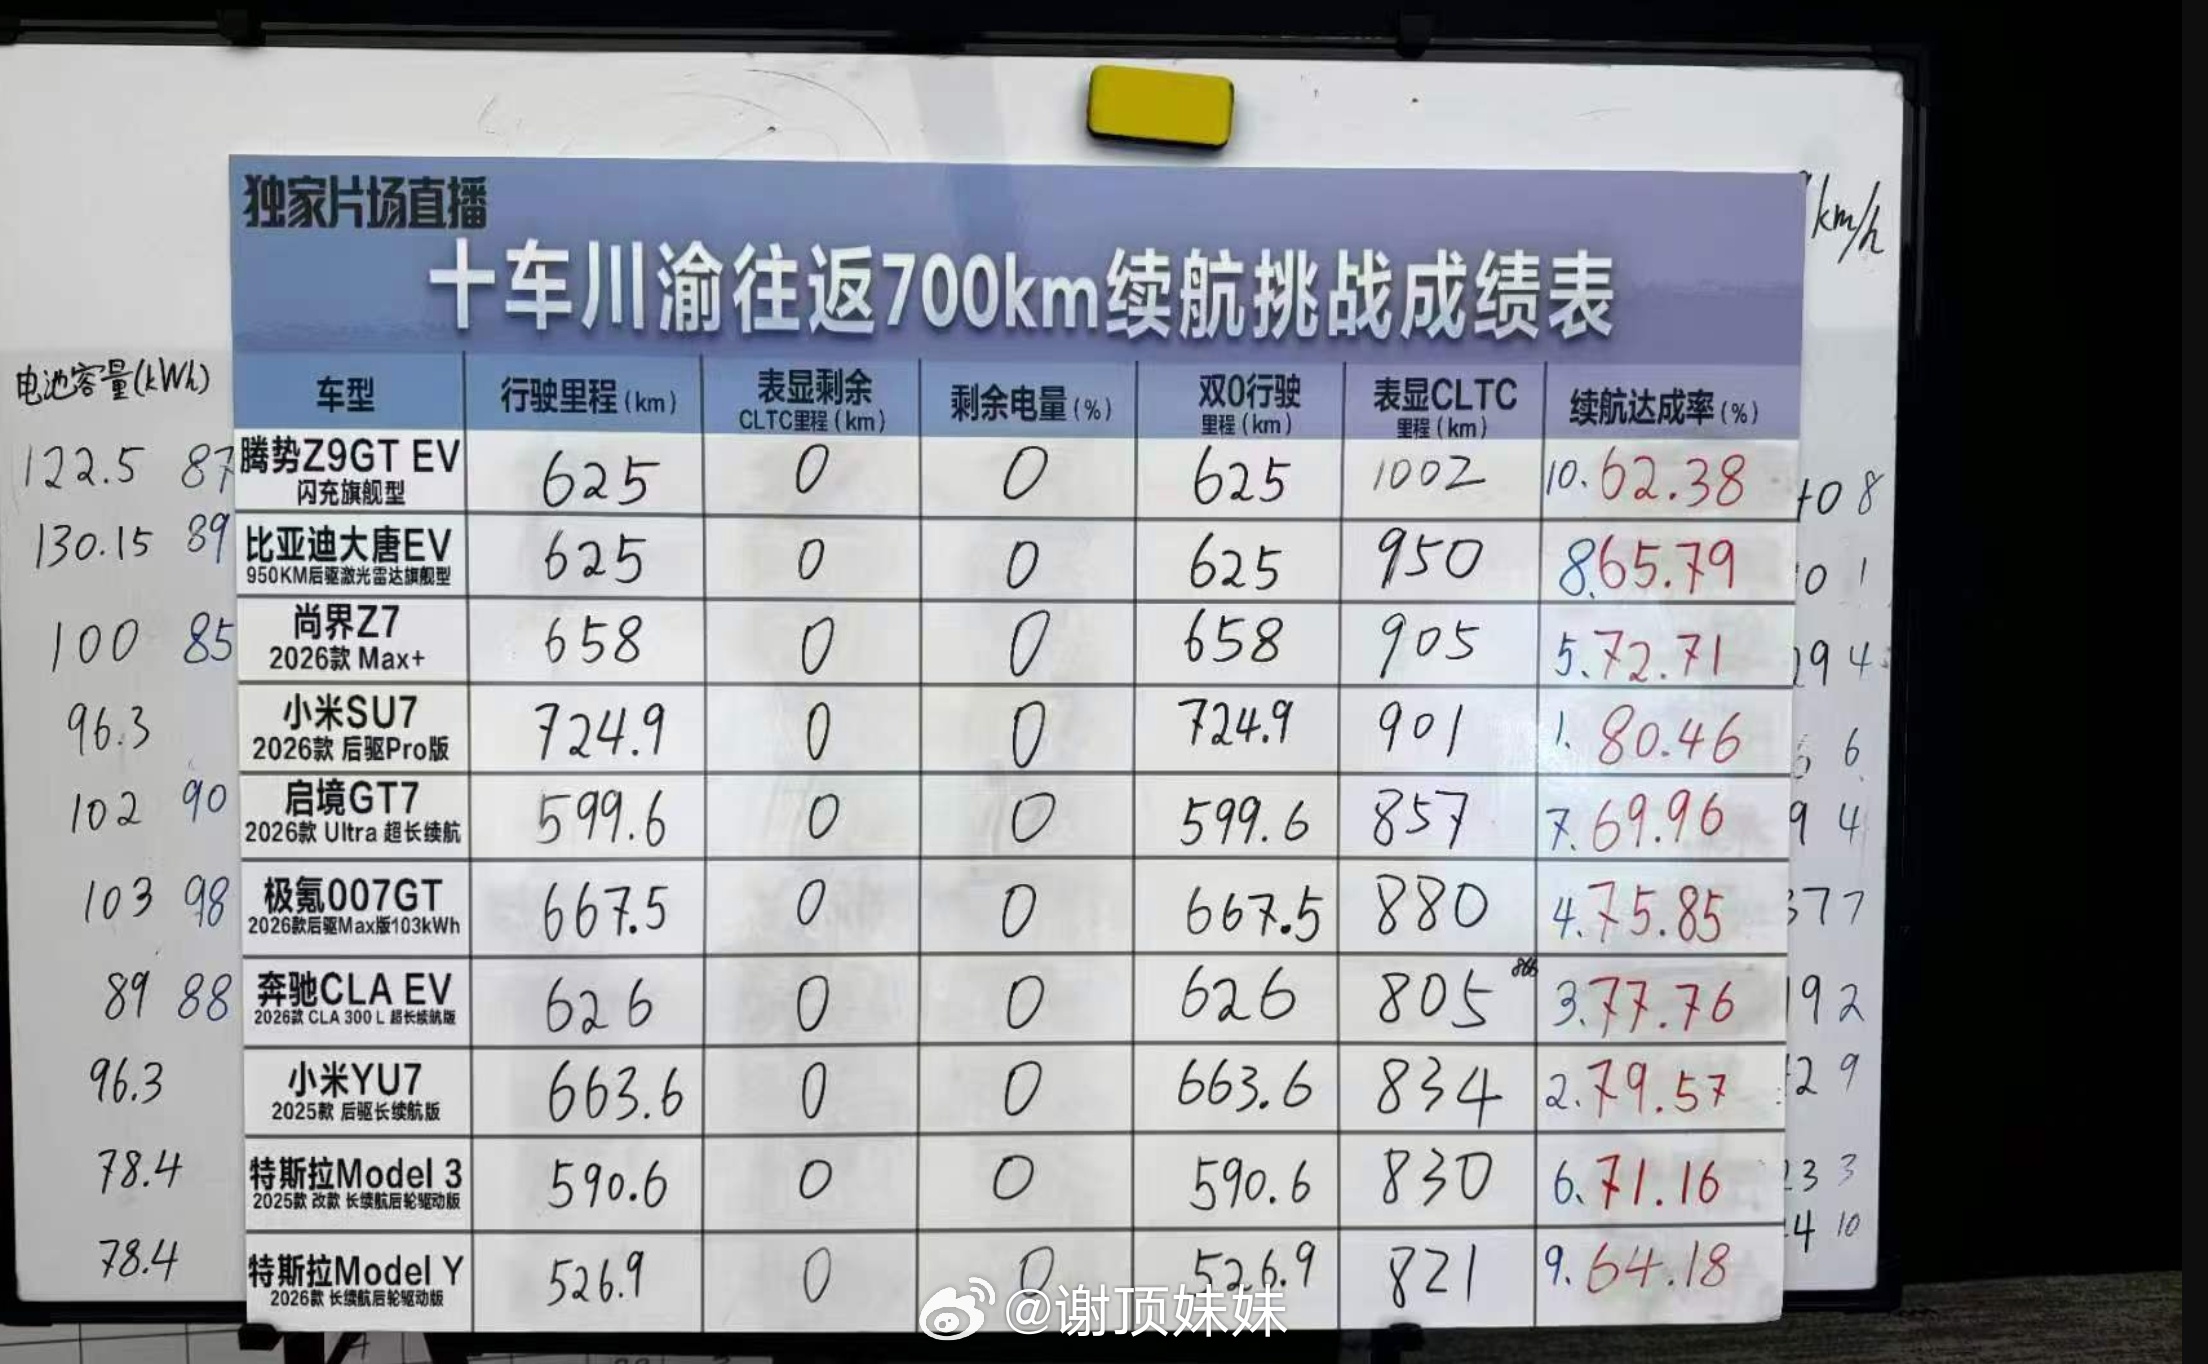 独家片场直播
km/h
十车川渝往返700km续航挑战成绩表
电池容量(kWh)
车型 行驶里程(km) 表显剩余CLTC里程(km) 剩余电量(%) 双0行驶里程(km) 表显CLTC里程(km) 续航达成率(%)
122.5 87 腾势Z9GT EV 闪充旗舰型 625 0 0 625 1002 10. 62.38 8
130.15 89 比亚迪大唐EV 950KM后驱激光雷达旗舰型 625 0 0 625 950 8. 65.79 1
100 85 尚界Z7 2026款 Max+ 658 0 0 658 905 5. 72.71 4
96.3 小米SU7 2026款 后驱Pro版 724.9 0 0 724.9 901 1. 80.46 6
102 90 启境GT7 2026款 Ultra 超长续航 599.6 0 0 599.6 857 7. 69.96 4
103 98 极氪007GT 2026款后驱Max版103kWh 667.5 0 0 667.5 880 4. 75.85 7
89 88 奔驰CLA EV 2026款 CLA 300 L 超长续航版 626 0 0 626 805 3. 77.76 2
96.3 小米YU7 2025款 后驱长续航版 663.6 0 0 663.6 834 2. 79.57 9
78.4 特斯拉Model 3 2025款 改款 长续航后轮驱动版 590.6 0 0 590.6 830 6. 71.16 3
78.4 特斯拉Model Y 2026款 长续航后轮驱动版 526.9 0 0 526.9 821 9. 64.18 10
@谢顶妹妹